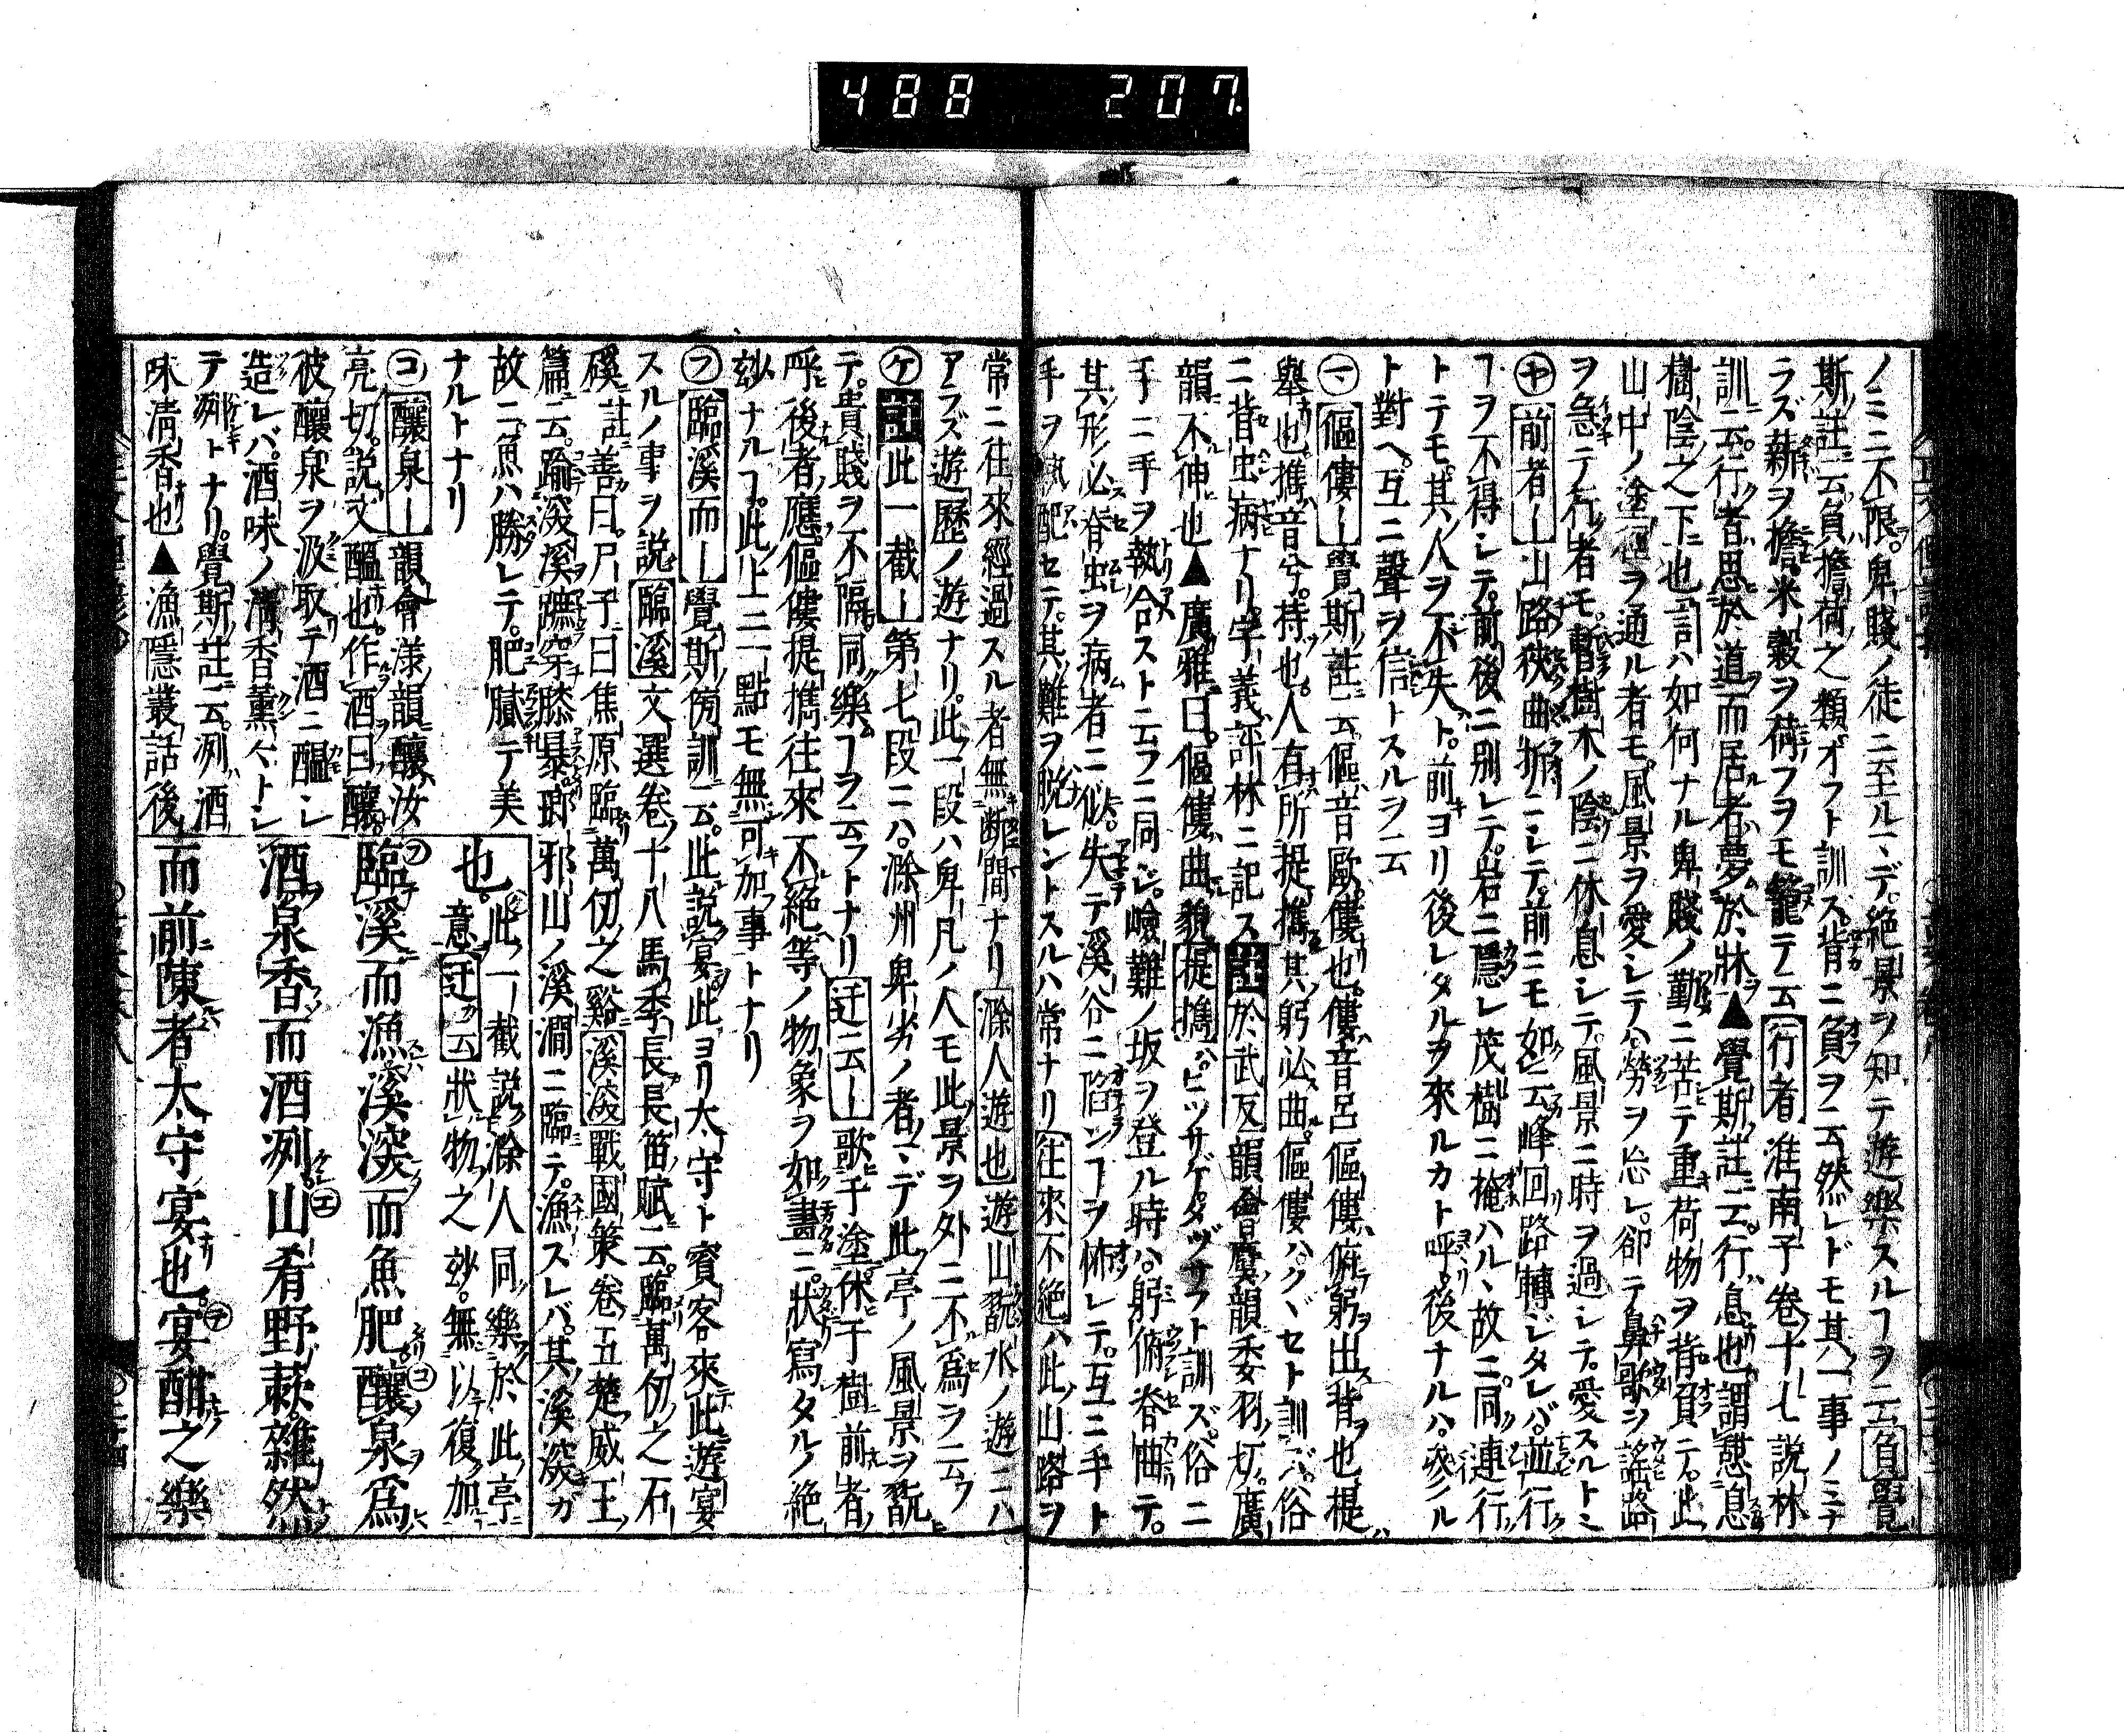 488 207
ノミニ不限。卑賤ノ徒ニ至ルマデ。絶景ヲ知テ遊樂スルヿヲ云負覺
斯註云負擔荷之類オフト訓ズ。背ニ負ヲ云然レドモ其一事ノミナ
ラズ薪ヲ擔。米穀ヲ荷フヲモ籠テ云行者淮南子卷十七說林
訓ニ云。行者思於道而居者夢於牀▲覺斯註云。行息也謂憩息
樹陰之下也言ハ如何ナル卑賤ノ勤ニ苦テ重荷物ヲ背負テ。此
山中ノ塗徑ヲ通ル者モ。風景ヲ愛シテハ勞ヲ忘レ。却テ鼻歌ヲ謠路
ヲ急テ行者モ。暫樹木ノ陰ニ休息シテ。風景ニ時ヲ過シテ。愛スルトミ
ヤ前者―山路狹曲折ニシテ。前ニモ如云峰回路轉ジタレバ。並行
ヿヲ不得シテ。前後ニ別レテ。岩ニ隱レ茂樹ニ掩ハル、故ニ。同連行
トテモ。其人ヲ不失ト。前ヨリ後レタルヲ來ルカト呼。後ナルハ。參ル
ト對ヘ。互ニ聲ヲ信トスルヲ云
マ傴僂―覺斯註云傴音歐僂也。僂音呂傴僂俯躬出背也提
擧也攜音兮。持也。人有所提攜其躬必曲。傴僂ハク、セト訓バ。俗
ニ背虫病ナリ。字義評林ニ記ス註於武反韻會麌韻委羽切。廣
韻不伸也▲廣雅曰。傴僂曲貌提攜ハヒツサゲ。タヅサフト訓ズ。俗ニ
手ニ手ヲ執合ストニ云フニ同ジ。嶮難ノ坂ヲ登ル時ハ。躬俯脊曲テ。
其形必脊虫ヲ病者ニ似。失テ溪谷ニ陷ンヿヲ怖レテ。互ニ手ト
手ヲ執配セテ。其難ヲ脫レントスルハ常ナリ往來不絕ハ此山路ヲ
常ニ往來經過スル者無斷間ナリ滁人遊也遊山翫水ノ遊ニハ
アラズ遊歷ノ遊ナリ。此一段ハ卑凡ノ人モ此景ヲ外ニ不爲ヲ云フ
ケ註此一截―第七段ニハ。滁州卑劣ノ者マデ此亭ノ風景ヲ翫
テ。貴賤ヲ不隔。同樂ヿヲ云フトナリ迂云―歌于塗休于樹前者
呼後者應傴僂提攜往來不絕等ノ物象ヲ如畫ニ。狀寫タルノ絶
玅ナルヿ。此上ニ一點モ無可加事トナリ
フ臨溪而―覺斯傍訓云。此說宴此ヨリ太守ト賓客來此遊宴
スルノ事ヲ說臨溪文選卷十八馬季長長笛賦云。臨萬仭之石
磎註善曰。尸子曰焦原臨萬仭之谿溪深戰國策卷五楚威王
篇云。踰深溪蹠穿膝暴瑯邪山ノ溪澗ニ臨テ。漁スレバ。其溪深ガ
故ニ魚ハ勝レテ。肥膩テ美
ナルトナリ
コ釀泉―韻會漾韻釀汝
亮切。說文醞也。作酒曰釀。
彼釀泉ヲ汲取テ酒ニ醞シ
造レバ。酒味ノ清香薰ストシ
テ冽トナリ。覺斯註云。冽酒
味清香也▲漁隱叢話後
也。此一截說滁人同樂於此亭
意迂云狀物之玅。無以復加
臨溪而漁溪深而魚肥釀泉爲
酒泉香而酒冽山肴野蔌。雜然
而前陳者太守宴也宴酣之樂